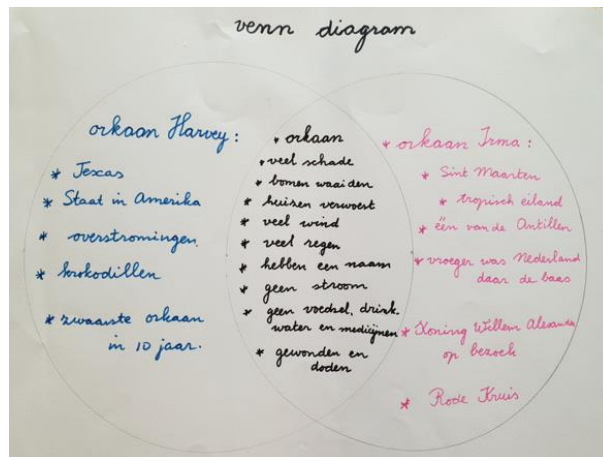 venn diagram
orkaan Harvey:
* Texas
* Staat in Amerika
* overstromingen.
* krokodillen
* zwaarste orkaan
in 10 jaar.
* orkaan
* veel schade
* bomen waaiden
* huizen verwoest
* veel wind
* veel regen
* hebben een naam
* geen stroom
* geen voedsel, drink
water en medicijnen
* gewonden en
doden
* orkaan Irma:
* Sint Maarten
* tropisch eiland
* één van de Antillen
* vroeger was Nederland
daar de baas
* Koning Willem Alexander
op bezoek
* Rode Kruis